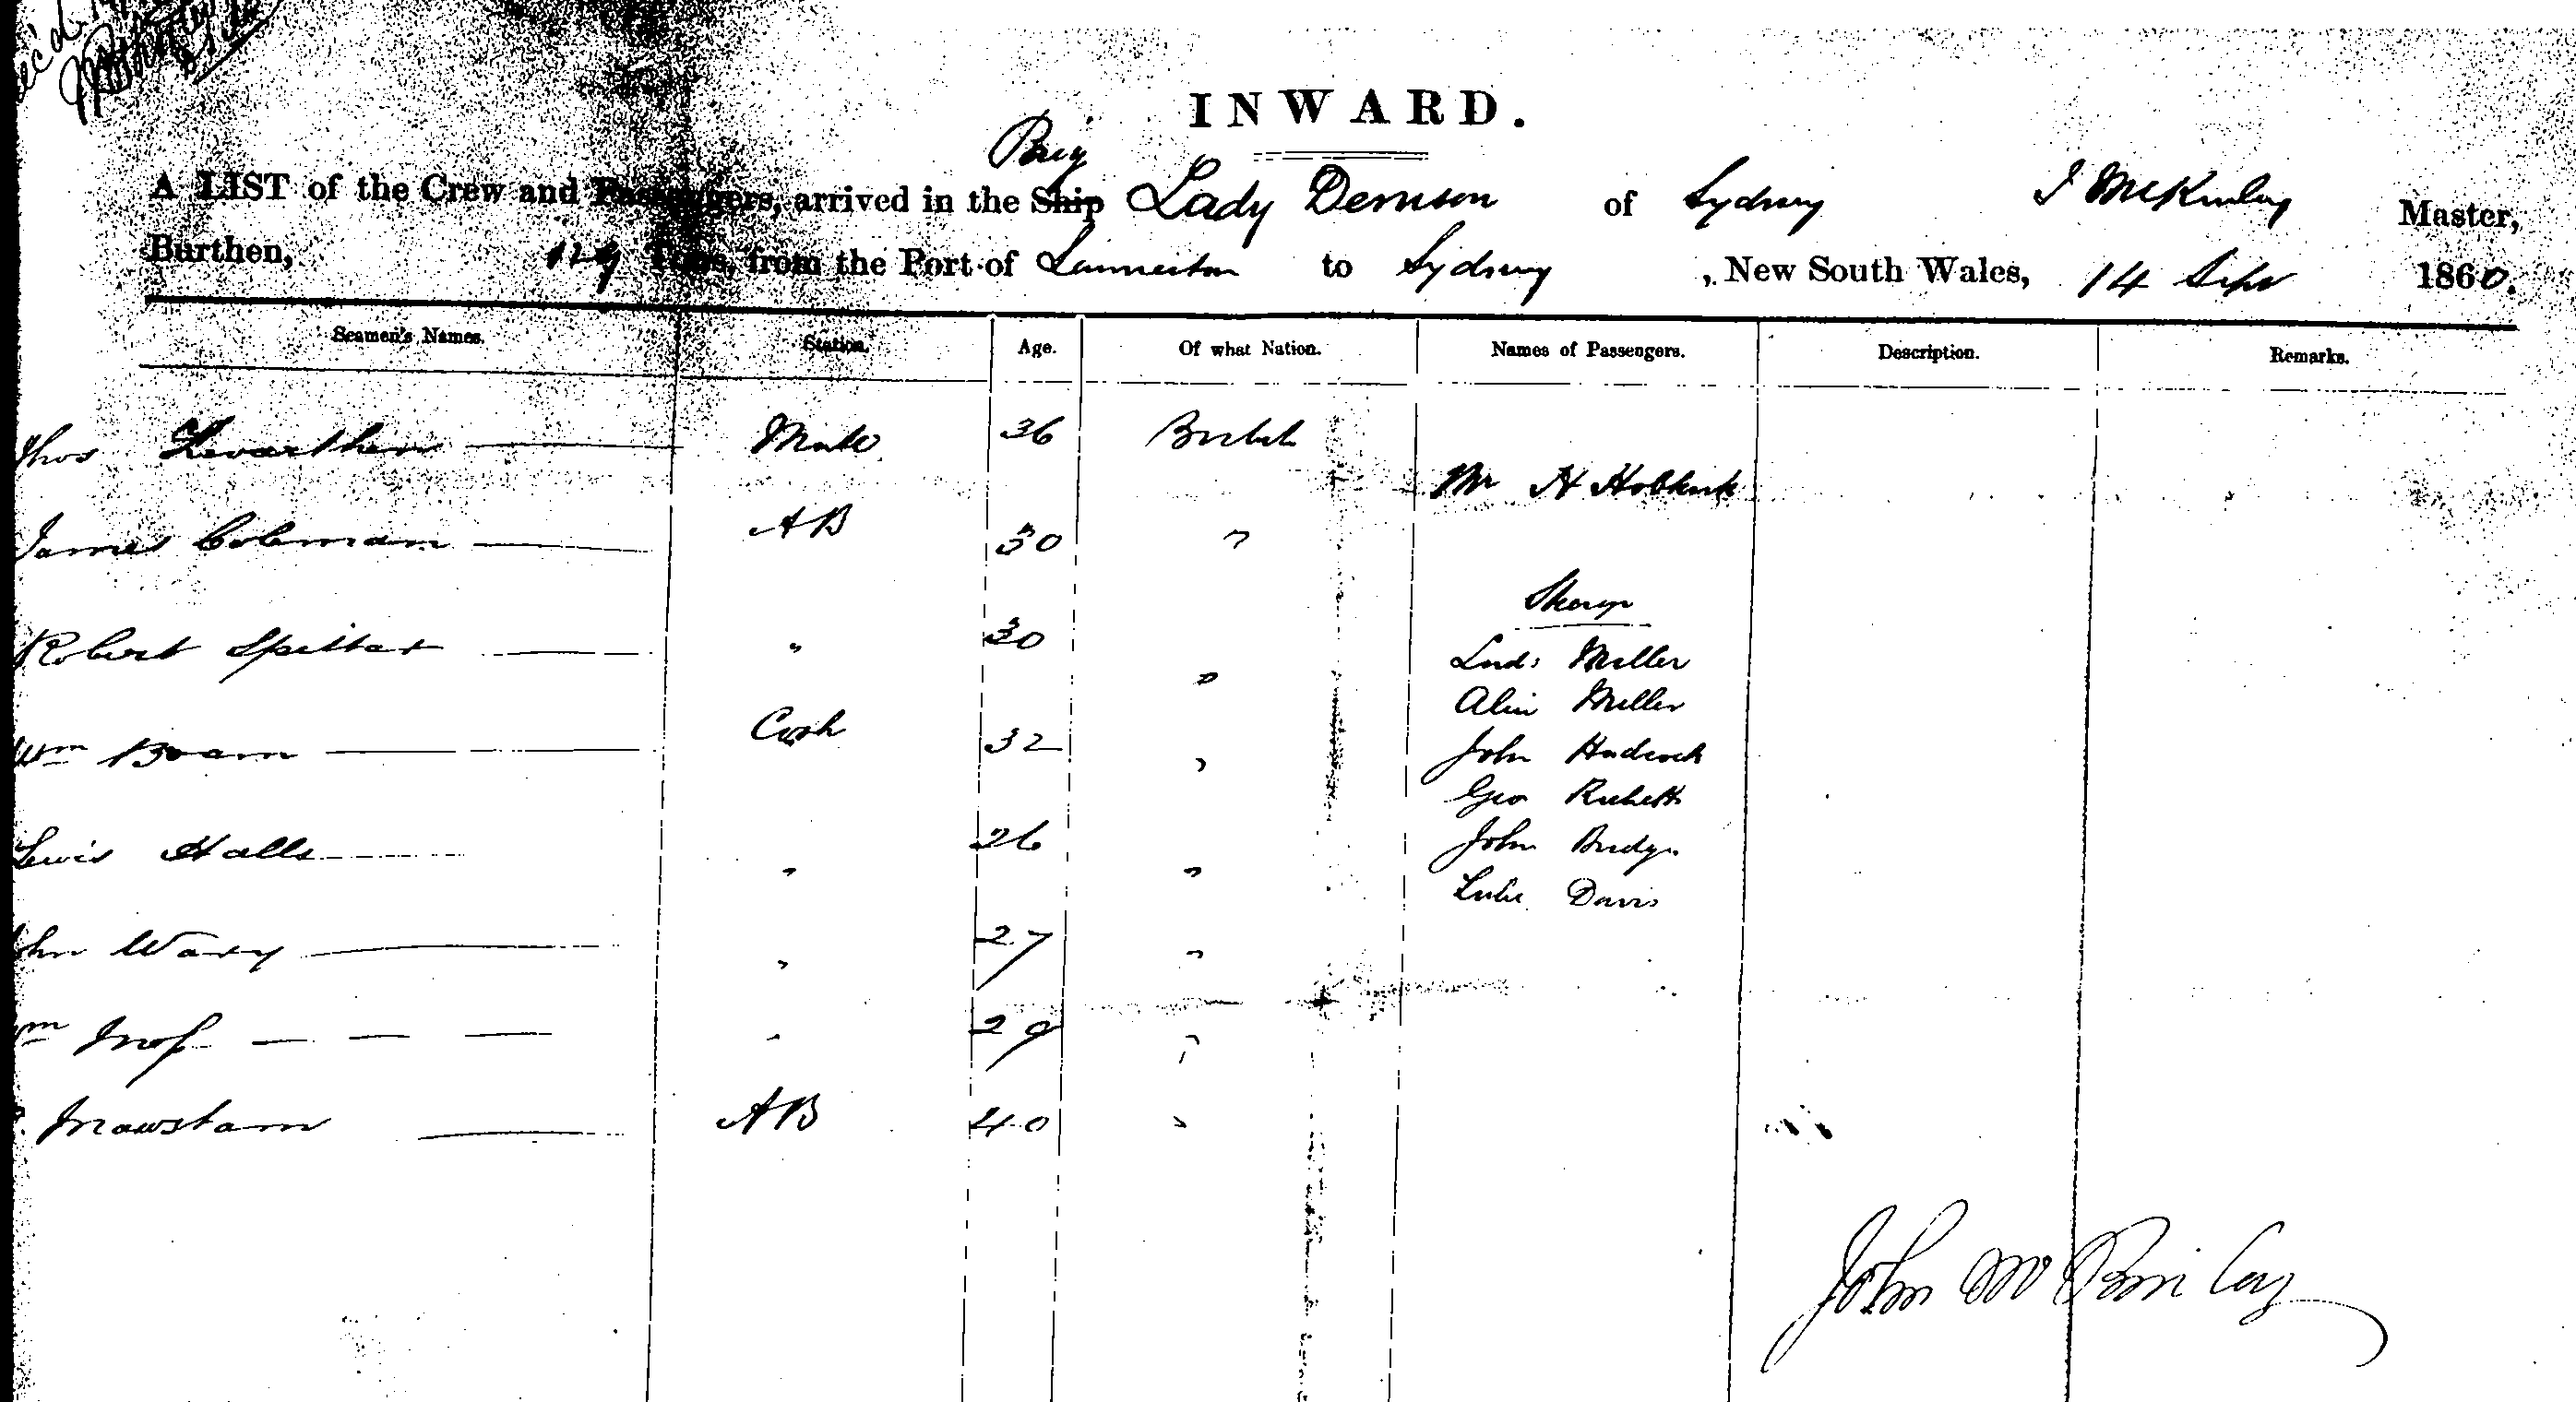 INWARD.
Brig
A LIST of the Crew and Passengers, arrived in the Ship Lady Denison of Sydney J McKinlay Master,
Burthen, 129 Tons, from the Port of Launceston to Sydney, New South Wales, 14 Sepr 1860.
Seamen's Names. Station. Age. Of what Nation. Names of Passengers. Description. Remarks.
Thos Trevarthen Mate 36 British
Mr H Hobkirk
James Coleman AB 30 "
Steerage
Robert Spittal " 30 "
Miller
Miller
Wm Beam Cook 32 "
John Hadcock
Geo Ricketts
Lewis Halls " 26 "
John Bridge
Davis
Wary " 27 "
" 29 "
AB 40 "
John McKinlay